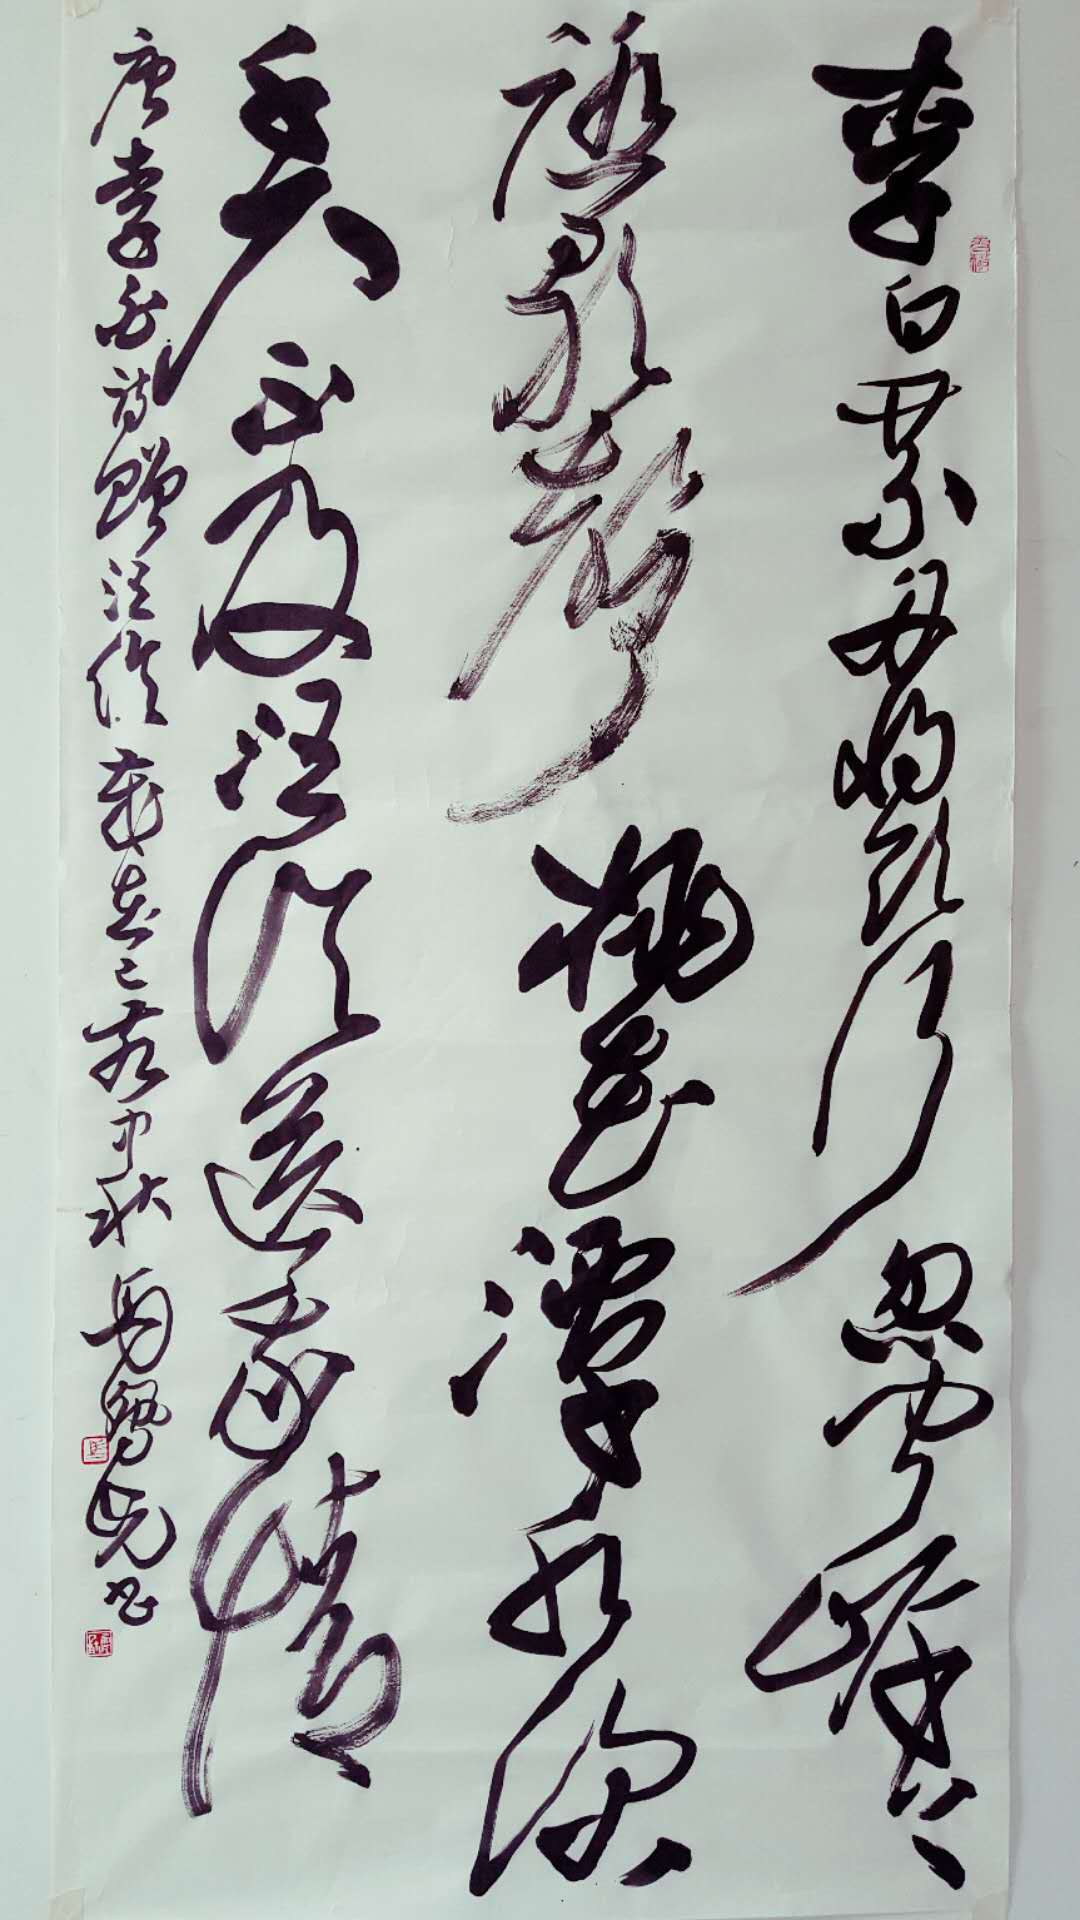 李白乘舟将欲行忽闻岸上
踏歌声桃花潭水深
千尺不及汪伦送我情
唐李白诗赠汪伦岁在己亥中秋马